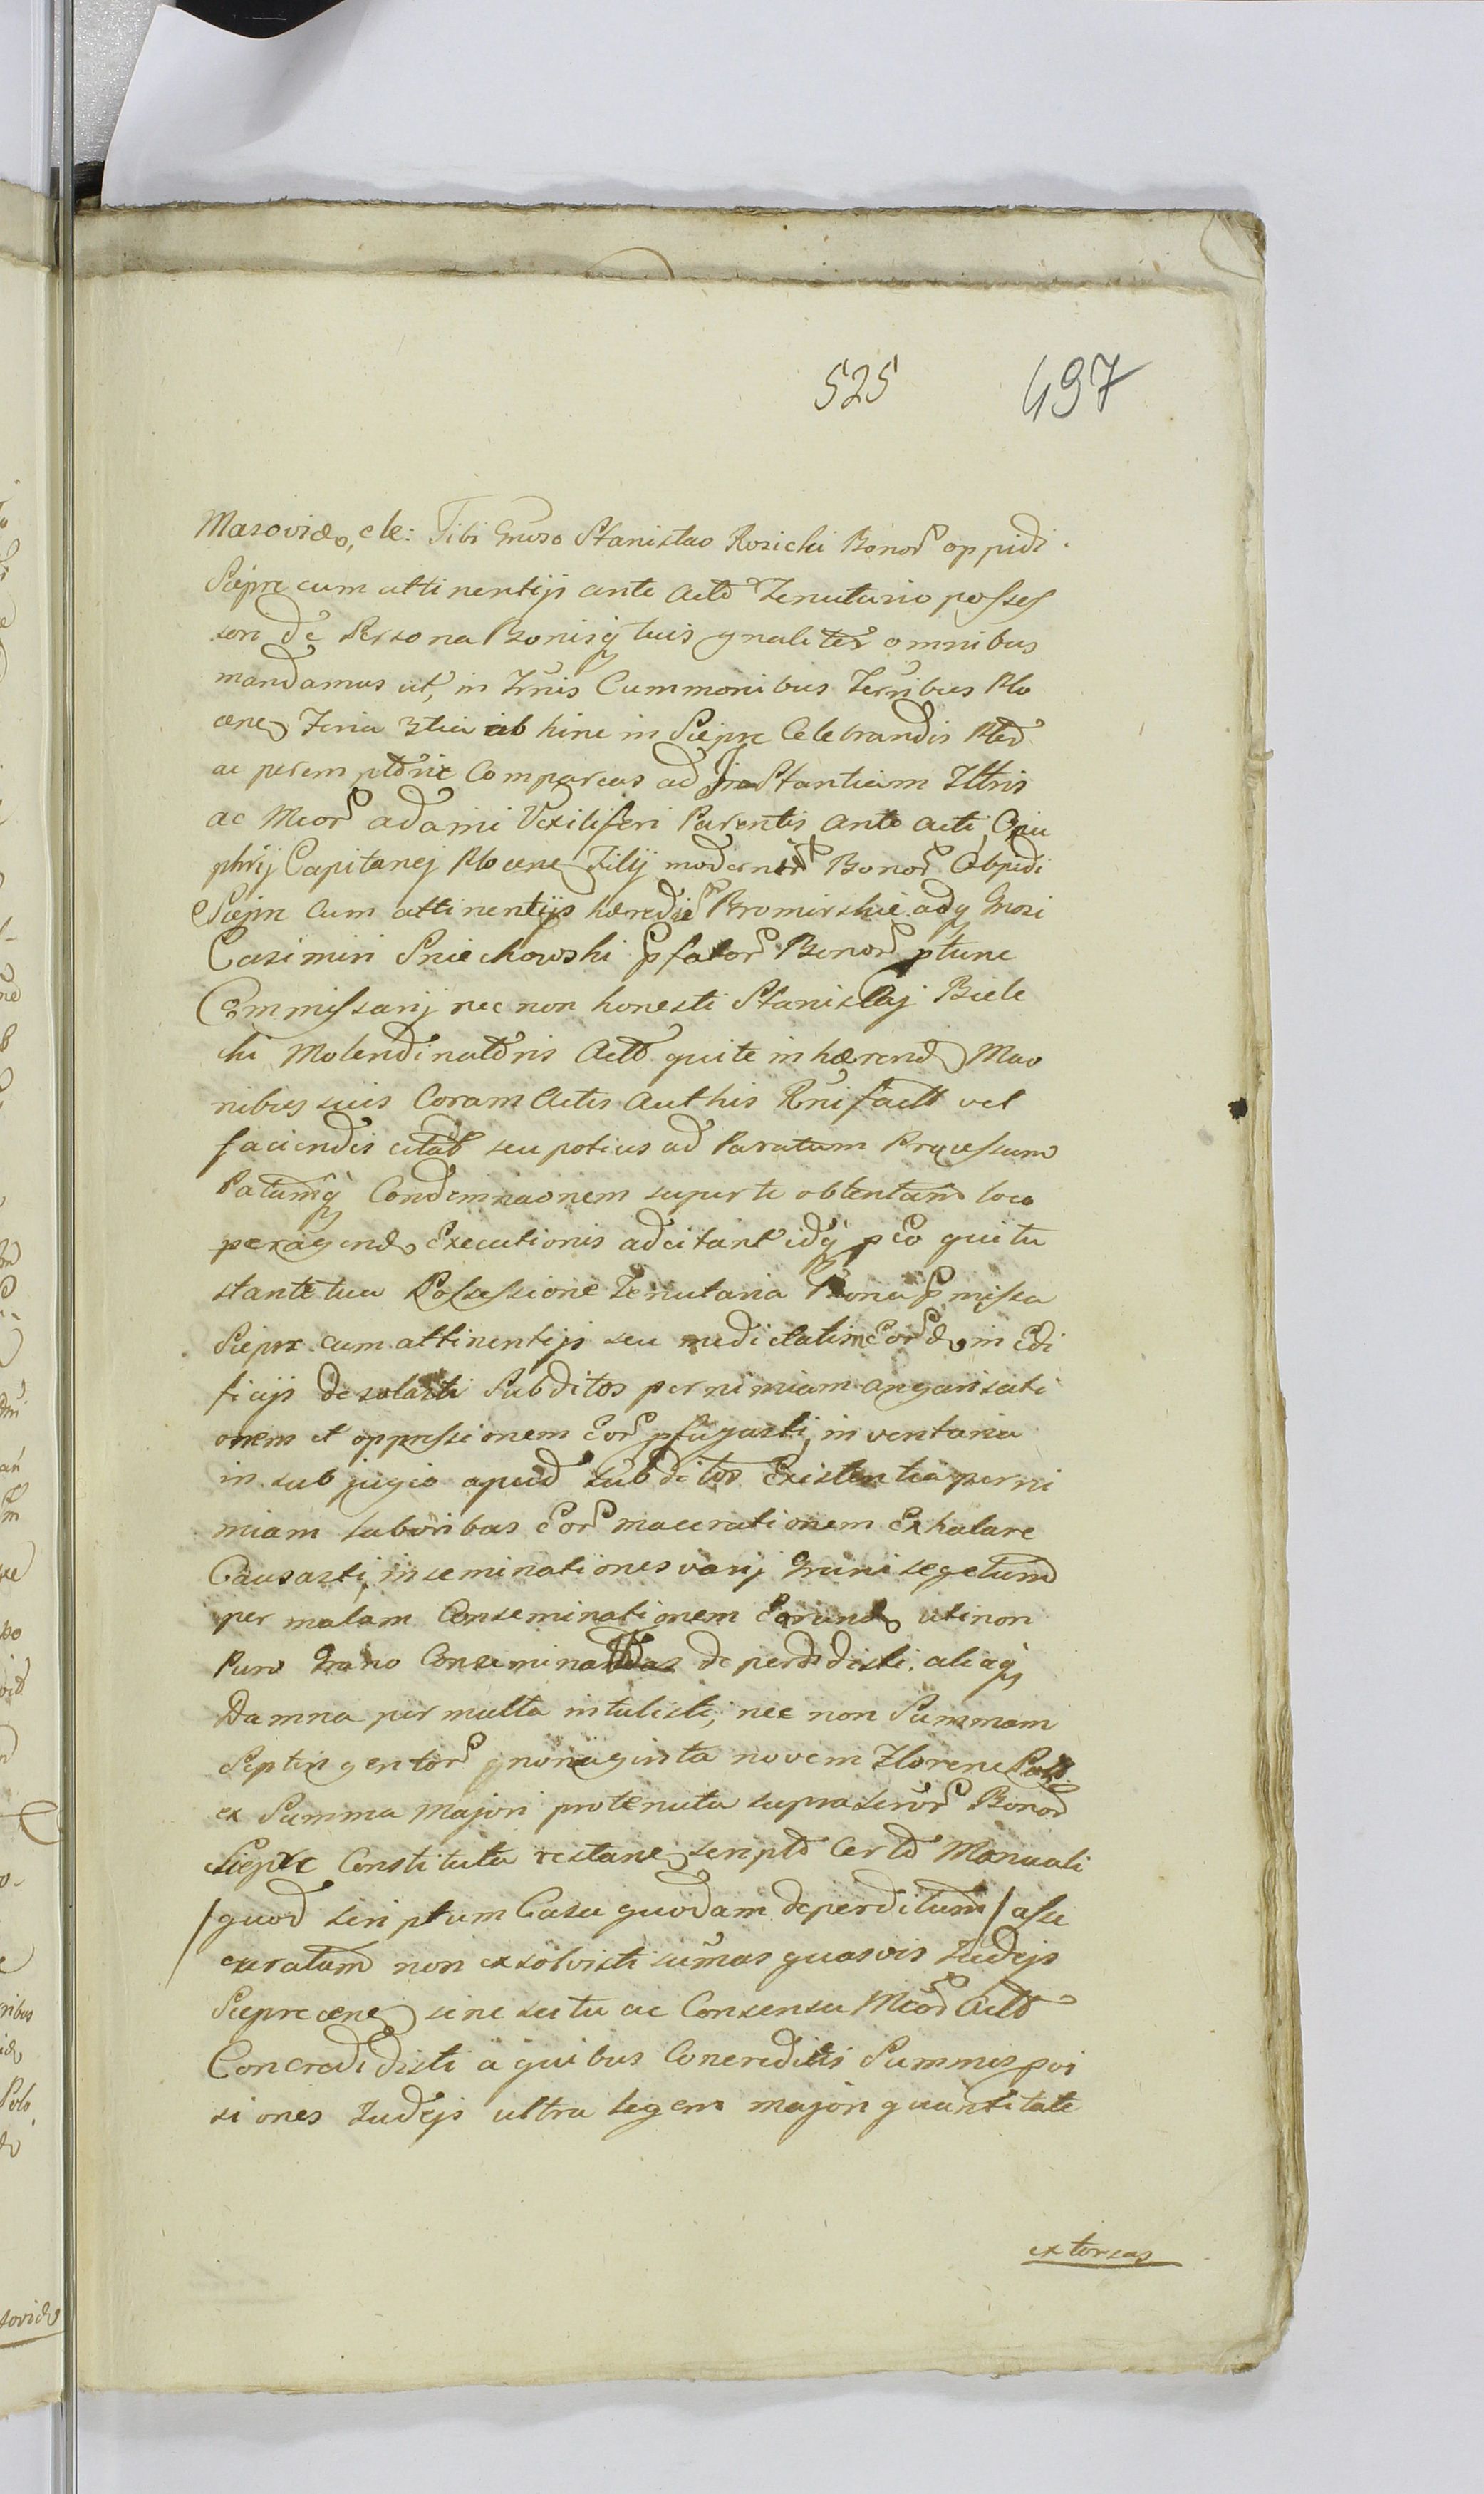 525 497
Masoviæ, etc: Tibi Gnroso Stanislao Rosicki Bonor oppidi
Sieprc cum attinentijs ante acto Tenutario possess
sori de Persona Bonisq tuis gnaliter omnibus
mandamus ut, in Trnis Cummonibus Terribus Plo
cene Feria 3tia ab hinc in Sieprc Celebrandis Pltr
ac peremptorie Compareas ad Instantiam Illtris
ac Mcor adami Vexiliferi Parentis ante acti Onu
phrij Capitanej Plocene Filij modernor Bonor Oppidi
Sieprc Cum attinentijs hæredie Bromirskie adq Gnosi
Casimiri Sniechowski pfator Bonor ptunc
Commissarij nec non honesti Stanislaj Biele
cki Molendinatoris Acto qui te inhærend Mao
nibus suis Coram Actis Authis Rni fact vel
faciendis citat seu potius ad Paratum Processum
Patumq Condemnaonem super te obtentam loco
peragend Executionis adcitant idq p Eo qui tu
stante tua Possessione Tenutaria Bona pmissa
Sieprc cum attinentijs seu medietatim Eord in Edi
ficijs desolasti Subditos per nimiam angarisati
onem et oppressionem Eor pfugasti, inventaria
in subjugio apud subditos Existentia per ni
miam laboribus Eor macerationem Exhalare
Causasti, inseminationes varij Grani segetum
per malam Conseminationem Earund uti non
Puro Grano Conseminatas deperdidisti. aliaq
Damna per multa intulisti, nec non Summam
Septingentor nonaginta novem Florenc Poll
ex Summa Majori pro tenuta suprascror Bonor
Sieprc Constituta restane scripto Certo Manuali
/quod scriptum Casu quodam deperditum/ asse
curatam non exsolvisti sumas quasvis Judejs
Sieprcene sine scitu ac Consensu Mcor Acto
Concredidisti a quibus Concreditis Summis pvi
siones Judejs ultra legem majori quantitate
extorsas